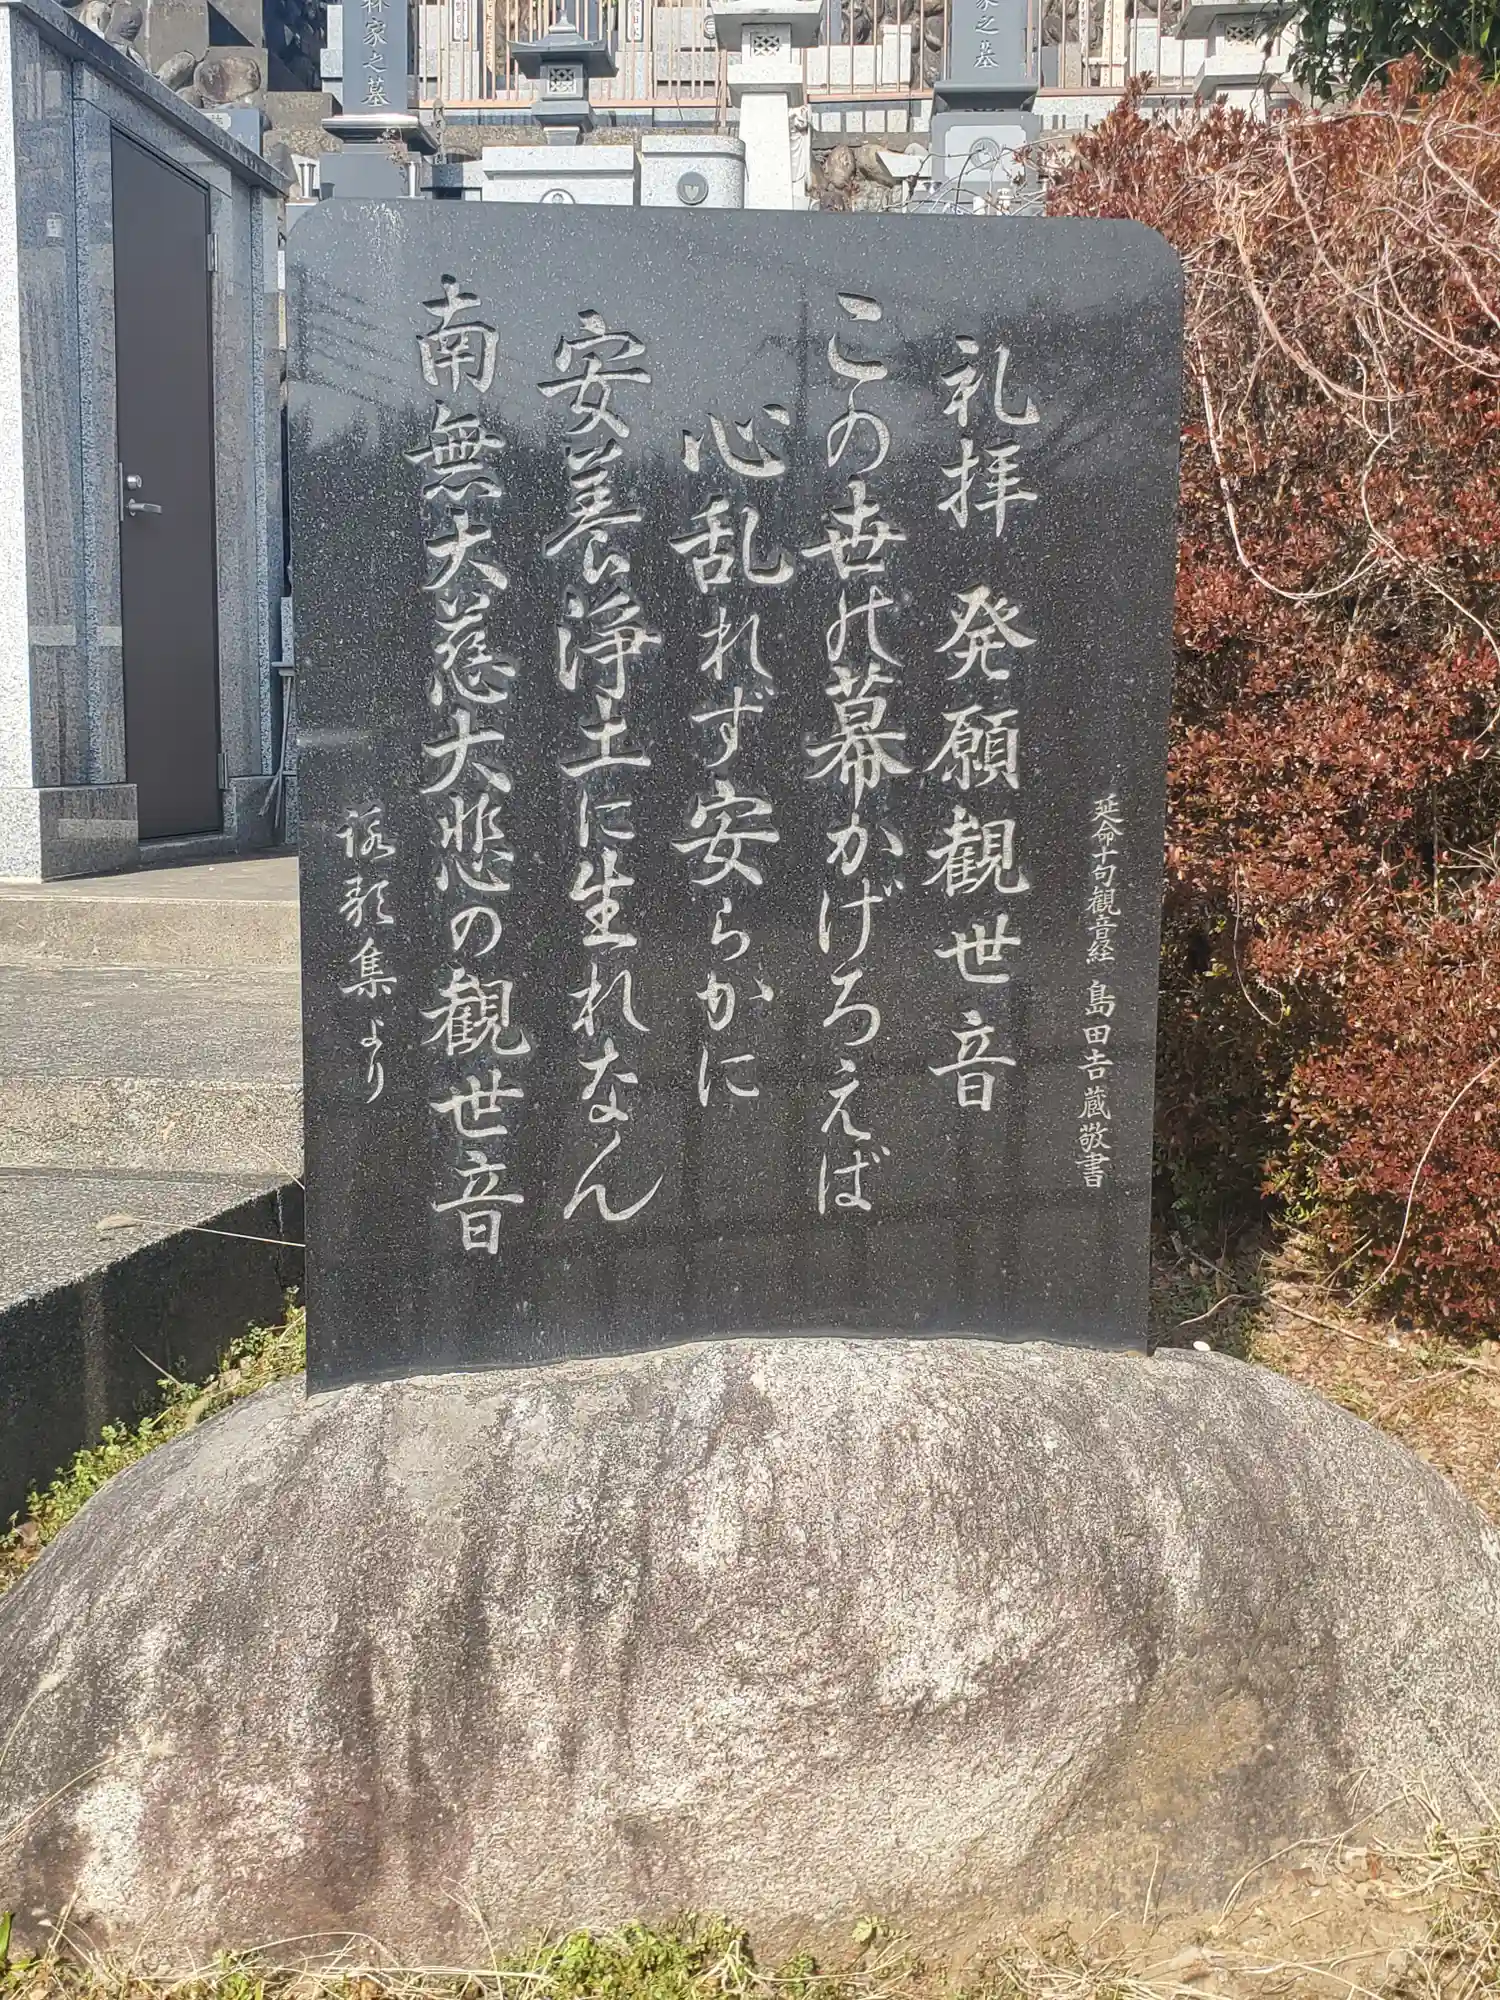 延命十句観音経 島田吉蔵敬書
礼拝 発願観世音
この世の幕かげろえば
心乱れず安らかに
安養浄土に生れなん
南無大慈大悲の観世音
詠歌集より
家之墓
家之墓